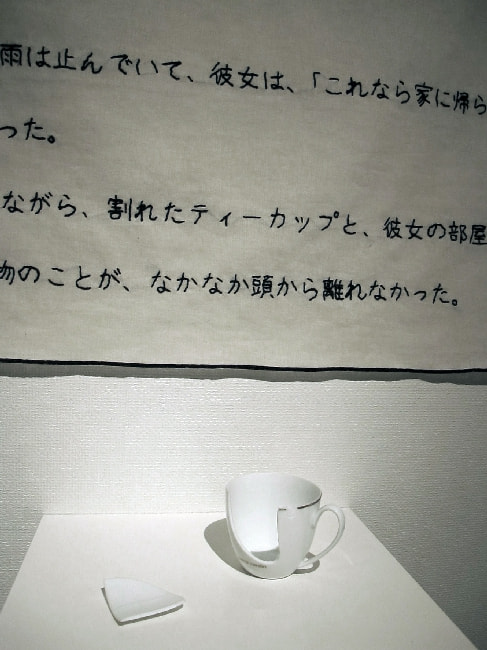 雨は止んでいて、彼女は、「これなら家に帰ら
った。
ながら、割れたティーカップと、彼女の部屋
物のことが、なかなか頭から離れなかった。